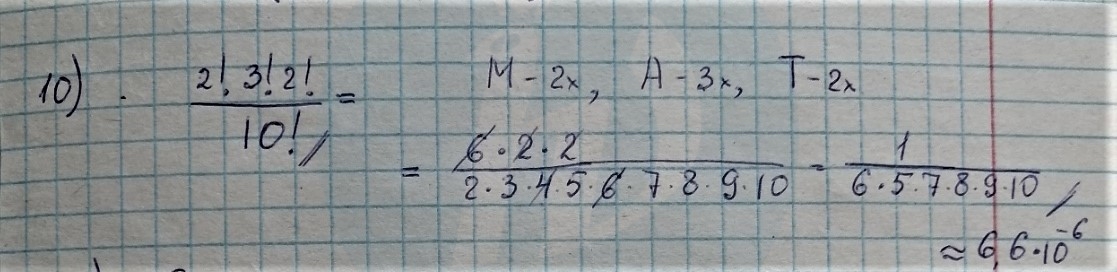 10) . 2! 3! 2! / 10! = M - 2x, A - 3x, T - 2x
= 6 · 2 · 2 / 2 · 3 · 4 · 5 · 6 · 7 · 8 · 9 · 10 = 1 / 6 · 5 · 7 · 8 · 9 · 10
≈ 6,6 · 10^-6